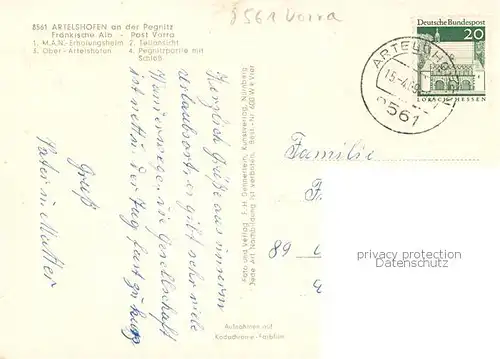 8561 Vorra
8561 ARTELSHOFEN an der Pegnitz
Fränkische Alb - Post Vorra
1. M.A.N.-Erholungsheim 2. Teilansicht
3. Ober-Artelshofen 4. Pegnitzpartie mit
Schloß
Deutsche Bundespost
20
LORSCH/HESSEN
ARTELSHOFEN
15.-4.69
8561
Herzlich Grüße aus unserm
Urlaubsort es gibt sehr viele
Wanderwege, die Gesellschaft
ist nett
Gruß
Vater u Mutter
Foto und Verlag
Kunstverlag, Nürnberg
Jede Art Nachbildung ist verboten. Best.-Nr.
Aufnahmen auf
Kodachrome-Farbfilm
Familie
F
89
privacy protection
Datenschutz